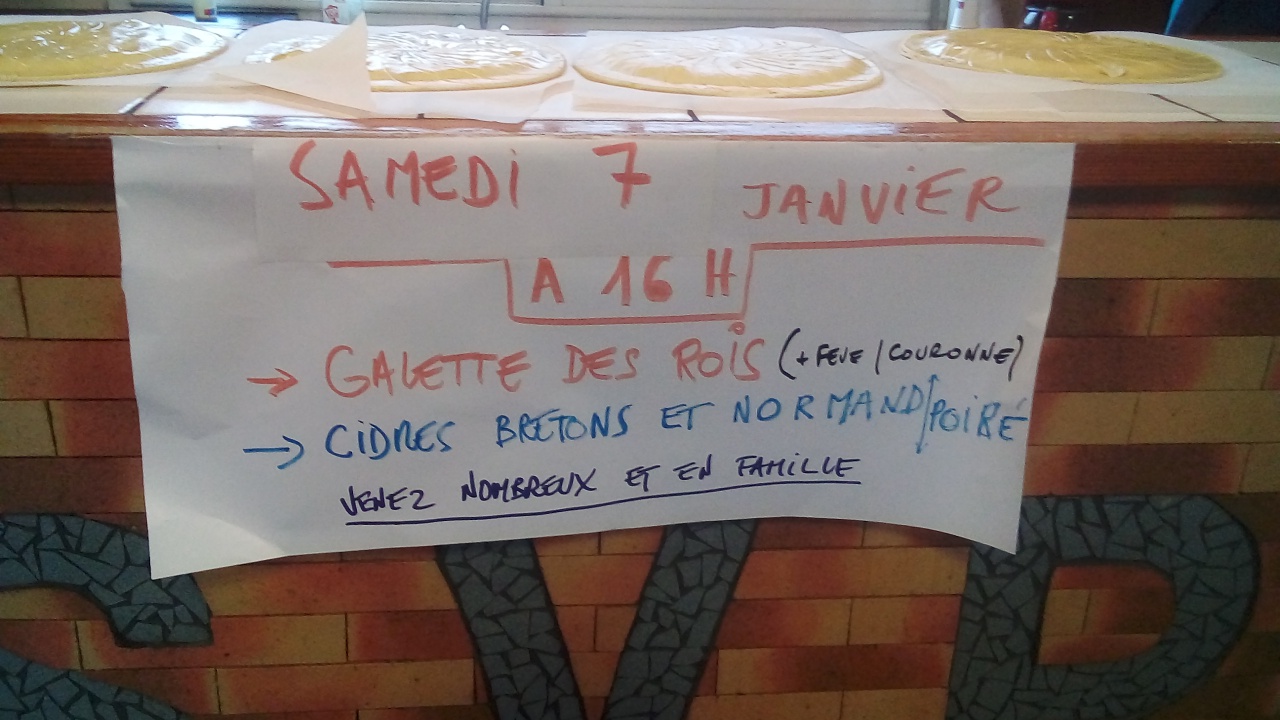 SAMEDI 7 JANVIER
A 16 H
→ GALETTE DES ROIS (+ FEVE / COURONNE)
→ CIDRES BRETONS ET NORMAND / POIRÉ
VENEZ NOMBREUX ET EN FAMILLE
SVP